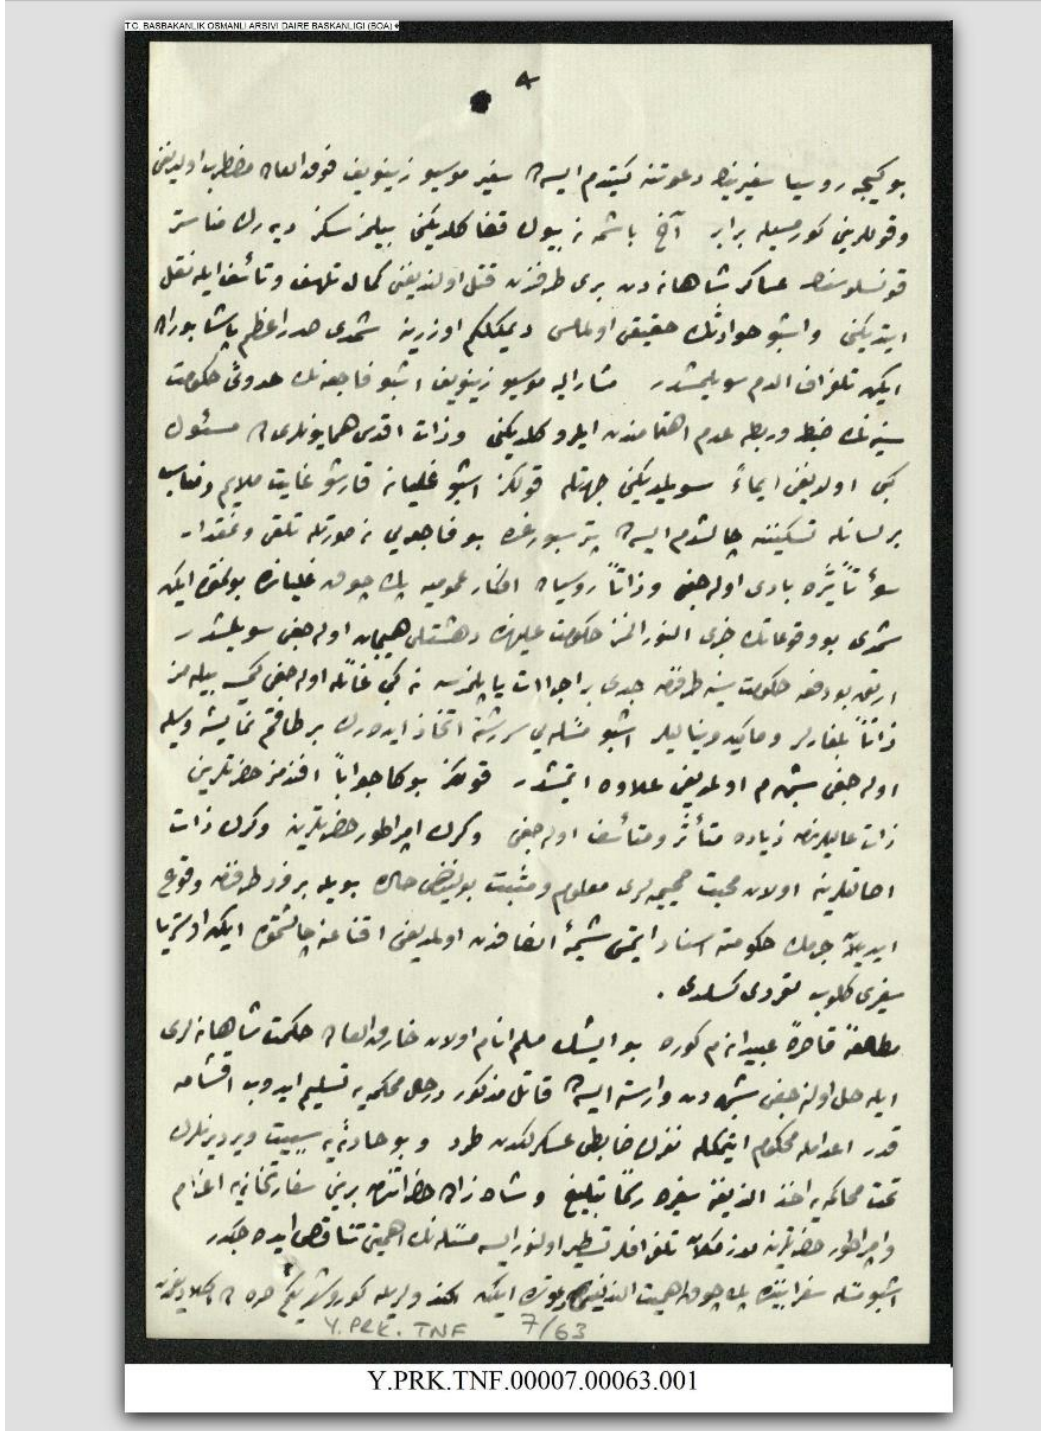 T.C. BASBAKANLIK OSMANLI ARSIVI DAIRE BASKANLIGI (BOA)
٨
بو كیجه روسیا سفیرینك دعوتنه كیتدم ایسه ده سفیر موسیو زینویف فوق العاده مضطرب اولدیغنی
وقوللرینی كورمسیله برابر آخ باشمه نه بیوك قضا كلدیكنی بیلمزسكز دیه رك مناستر
قونسلوسنك عساكر شاهانه دن بری طرفندن قتل اولندیغنی كمال تلهف وتأسف ایله نقل
ایتدیكنی واشبو حوادثك حقیقی اولمامسی دیمكلكم اوزرینه شمدی صدر اعظم پاشا بوراده
ایكن تلغراف الدم سویلمشدر مشار الیه موسیو زینویف اشبو فاجعه نك حدوثی حكومت
سنیه نك ضبط وربطه عدم اهتمامندن ایلرو كلدیكنی وذات اقدس همایونلری ده مسئول
كبی اولدیغنی ایماءً سویلدیكنی جهتله قولكز اشبو غلیانه قارشو غایت ملایم ومناسب
برلسانله تسكیننه چالشدم ایسه ده پترسبورغده بو فاجعه یی نه صورتله تلقی ونه مقدار
سوء تأثیره بادی اوله جغی وذاتاً روسیاده افكار عمومیه پك چوق غلیانده بولنمقده ایكن
شمدی بو وقوعاتك خبری النور النمز حكومت علیهنده دهشتلی هیجان اوله جغی سویلمشدر
ارتق بو دفعه حكومت سنیه طرفندن جدی براجراات یاپلمزسه نه كبی غائله اوله جغی كیمسه بیله مز
ذاتاً بلغارلر وماكیدونیالیلر اشبو مسئله یی سررشته اتخاذ ایده رك برطاقم نمایشه وسیله
اوله جغی شبهه م اولمدیغنی علاوه ایتمشدر قولكز بوكا جواباً افندمز حضرتلرینك
ذات عالیلرندن زیاده متأثر ومتأسف اوله جغی وكرك امپراطور حضرتلرینه وكرك ذات
اصالتلرینه اولان محبت صمیمیه لری معلوم ومثبت بولندیغی حالده بویله برفرد طرفندن وقوع
ایدیلان جرمك حكومته اسناد ایتمك شیمۀ انصافدن اولمدیغنی اقناعه چالشمقده ایكن اوستریا
سفیری كلوب تقردی كسلدی .
مطالعۀ قاصرۀ عبیدانه م كوره بو ایشك مسلم انام اولان خارق العاده حكمت شاهانه لری
ایله حل اولنه جغی شبهه دن وارسته ایسه ده قاتل مذكور درحال محكمه یه تسلیم ایدوب اقشامه
قدر اعدامله محكوم ایتمكله نفرك ضابطی عسكرلكدن طرد وبو حادثه یه سببیت ویردیرنلرك
تحت محاكمه یه اخذ الندیغنی سفیره رسماً تبلیغ وشاهزاده حضراتندن برینی سفارتخانه یه اعزام
وامپراطور حضرتلرینه تلغرافلر تسطیر اولنور ایسه مسئله نك اهمیتی تناقص ایده جكدر
اشبو مسئله سفرا بیننده پك چوق اهمیت
Y.PRK. TNF 7/63
Y.PRK.TNF.00007.00063.001